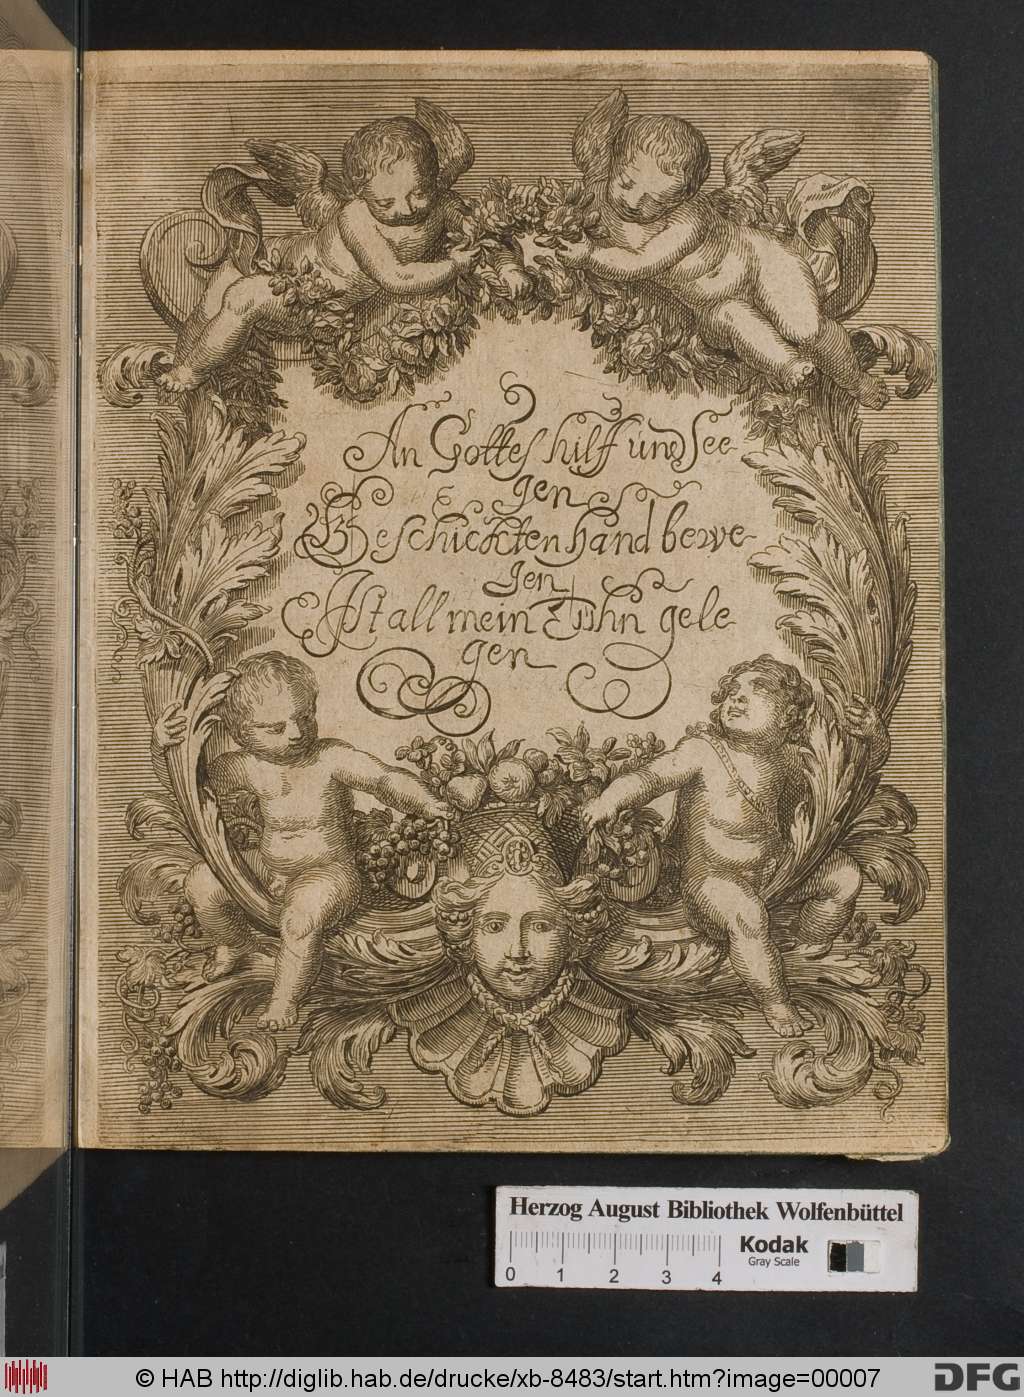 An Gottes hilf und See-
gen
Geschickten hand bewe-
gen
Ist all mein Tuhn gele-
gen
Herzog August Bibliothek Wolfenbüttel
0 1 2 3 4
Kodak
Gray Scale
© HAB http://diglib.hab.de/drucke/xb-8483/start.htm?image=00007
DFG